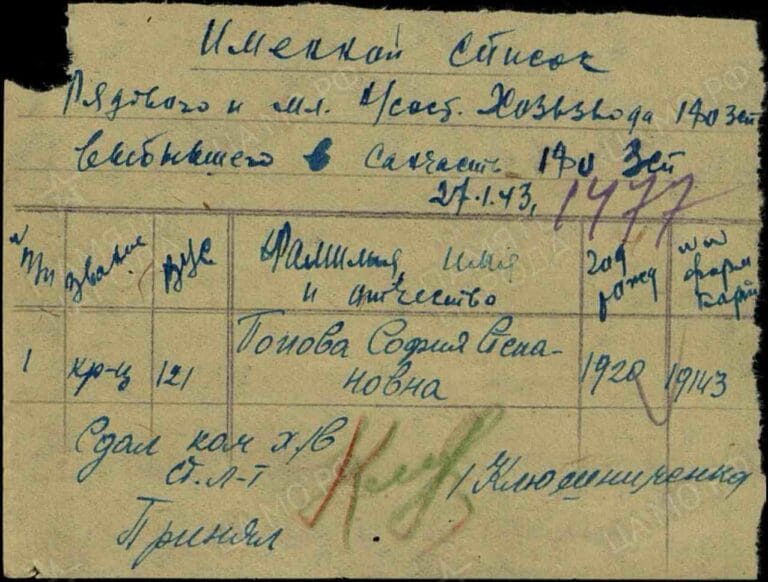 Именной список
Рядового и мл. н/сост. Хозвзвода 140 Зсп
выбывшего в санчасть 140 Зсп
27.1.43, 1477
№ п/п звание ВУС Фамилия, имя и отчество год рожд №№ форм карт
1 кр-ц 121 Попова София Степановна 1920 19143
Сдал ком х/в
ст. л-т /Клюшниченко
Принял